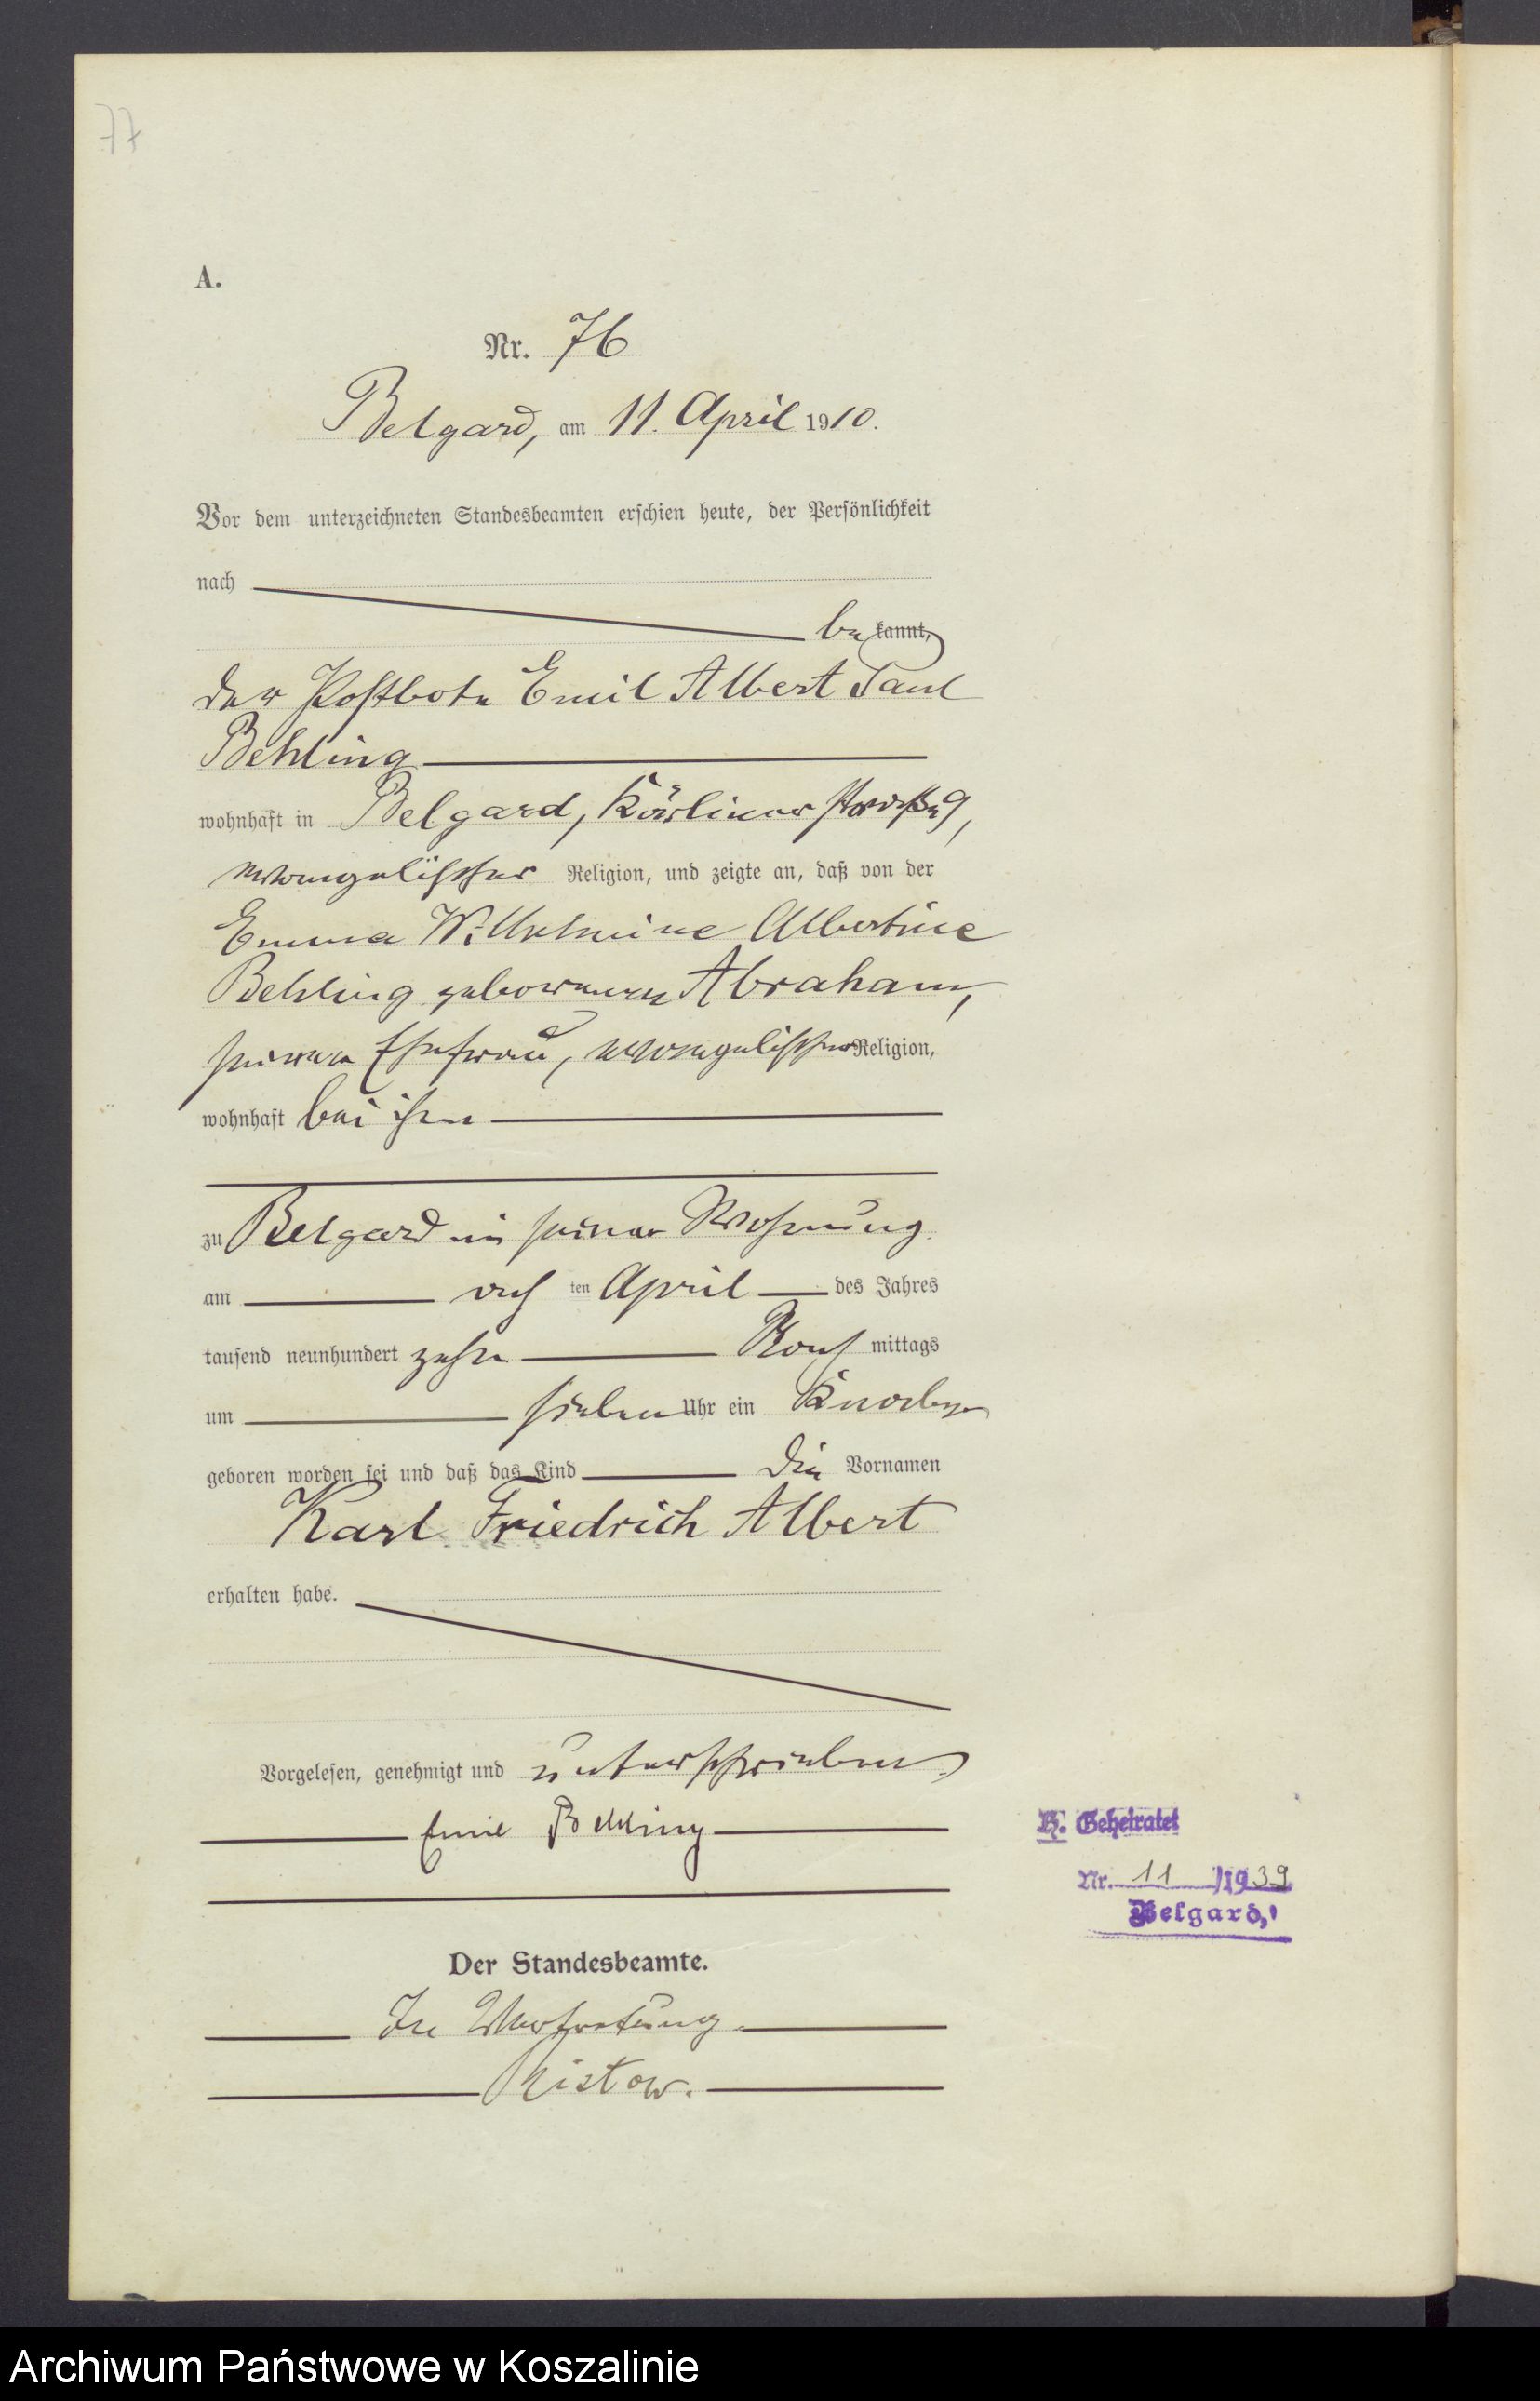 77
A.
Nr. 76
Belgard, am 11. April 1910.
Vor dem unterzeichneten Standesbeamten erschien heute, der Persönlichkeit
nach
be kannt,
der Postbote Emil Albert Paul
Behling
wohnhaft in Belgard, Körliner Straße 9,
evangelischer Religion, und zeigte an, daß von der
Emma Wilhelmine Albertine
Behling geborenen Abraham,
seiner Ehefrau, evangelischer Religion,
wohnhaft bei ihm
zu Belgard in seiner Wohnung
am acht ten April des Jahres
tausend neunhundert zehn Nach mittags
um sieben Uhr ein Knabe
geboren worden sei und daß das Kind die Vornamen
Karl Friedrich Albert
erhalten habe.
Vorgelesen, genehmigt und unterschrieben
Emil Behling
H. Geheiratet
Nr. 11 /1939
Belgard,
Der Standesbeamte.
In Vertretung
Ristow.
Archiwum Państwowe w Koszalinie